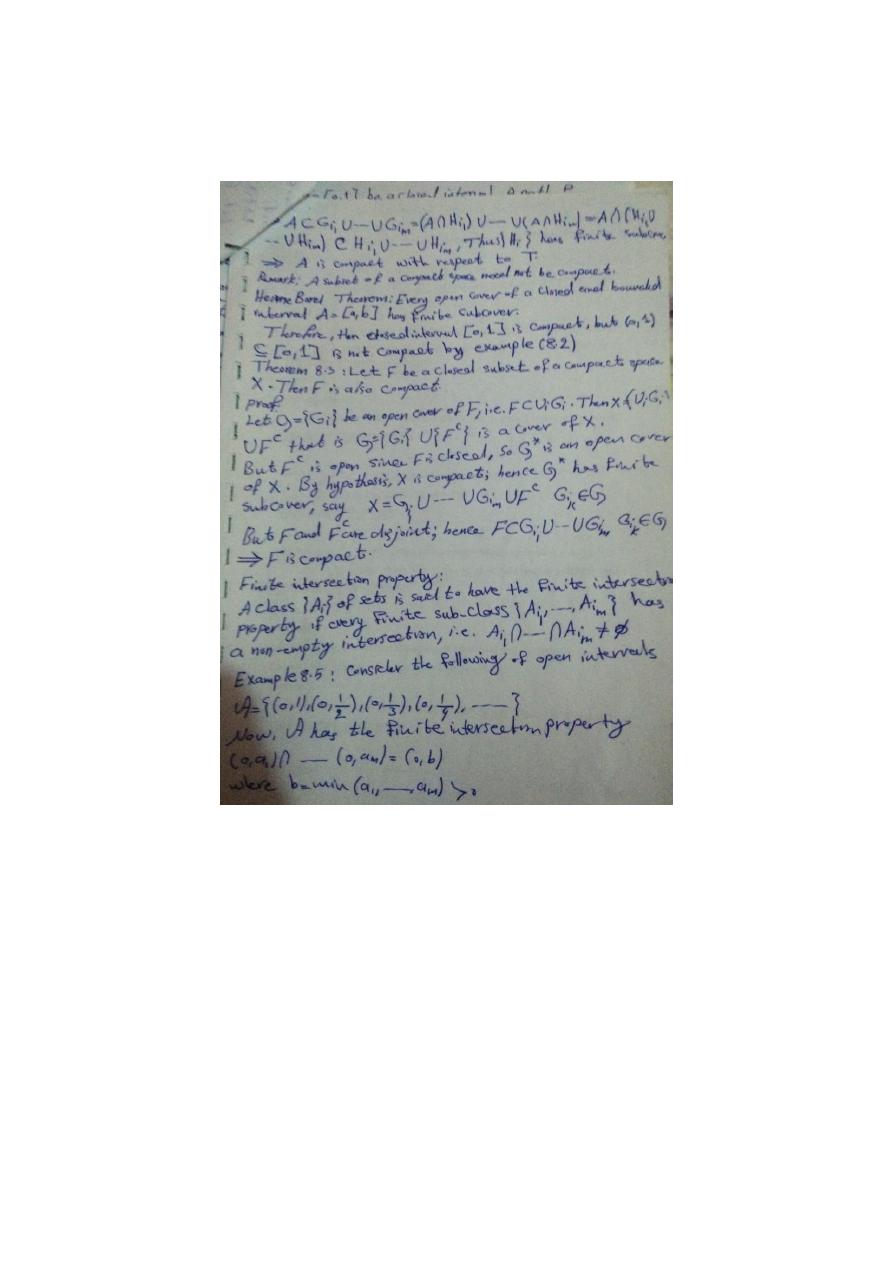 [0,1] be a closed interval
A⊂Gi₁∪---∪Gim=(A∩Hi₁)∪---∪(A∩Him)=A∩(Hi₁∪
--∪Him) ⊂ Hi₁∪---∪Him, Thus {Hi} has finite subcover
⇒ A is compact with respect to T.
Remark: A subset of a compact space need not be compact.
Heine Borel Theorem: Every open cover of a closed and bounded
interval A=[a,b] has finite subcover.
Therefore, then closed interval [0,1] is compact, but (0,1)
⊆[0,1] is not compact by example (8.2)
Theorem 8.3: Let F be a closed subset of a compact space
X. Then F is also compact.
proof:
Let G={Gi} be an open cover of F, i.e. F⊂∪iGi. Then X=(∪iGi)
∪Fᶜ that is G*={Gi}∪{Fᶜ} is a cover of X.
But Fᶜ is open since F is closed, so G* is an open cover
of X. By hypothesis, X is compact; hence G* has finite
subcover, say X=Gi₁∪---∪Gim∪Fᶜ Gik∈G
But F and Fᶜ are disjoint; hence F⊂Gi₁∪--∪Gim Gik∈G
⇒ F is compact.
Finite intersection property:
A class {Ai} of sets is said to have the finite intersection
property if every finite sub-class {Ai₁,---,Aim} has
a non-empty intersection, i.e. Ai₁∩---∩Aim≠∅
Example 8.5: Consider the following of open intervals
A={(0,1),(0,1/2),(0,1/3),(0,1/4),----}
Now, A has the finite intersection property
(0,a₁)∩ --- (0,am)=(0,b)
where b=min(a₁,---,am)>0